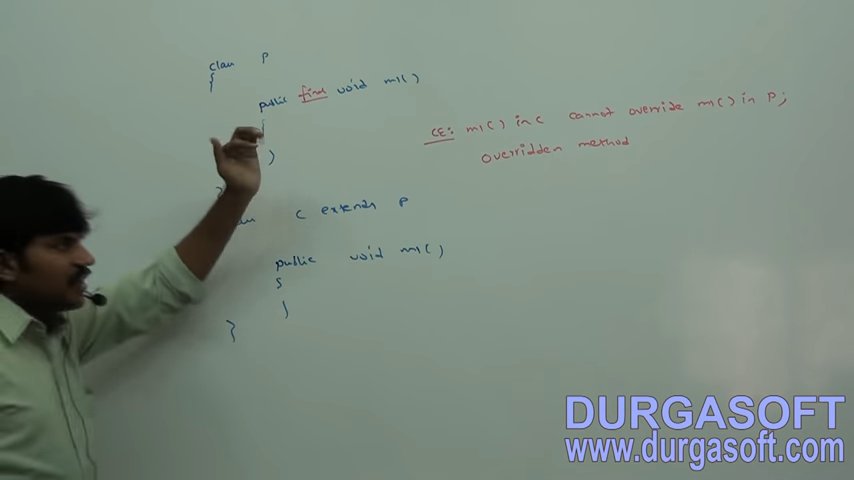 class P
{
public final void m1()
{
}
C extends P
public void m1()
{
}
}
CE: m1() in C cannot override m1() in P;
overridden method
DURGASOFT
www.durgasoft.com